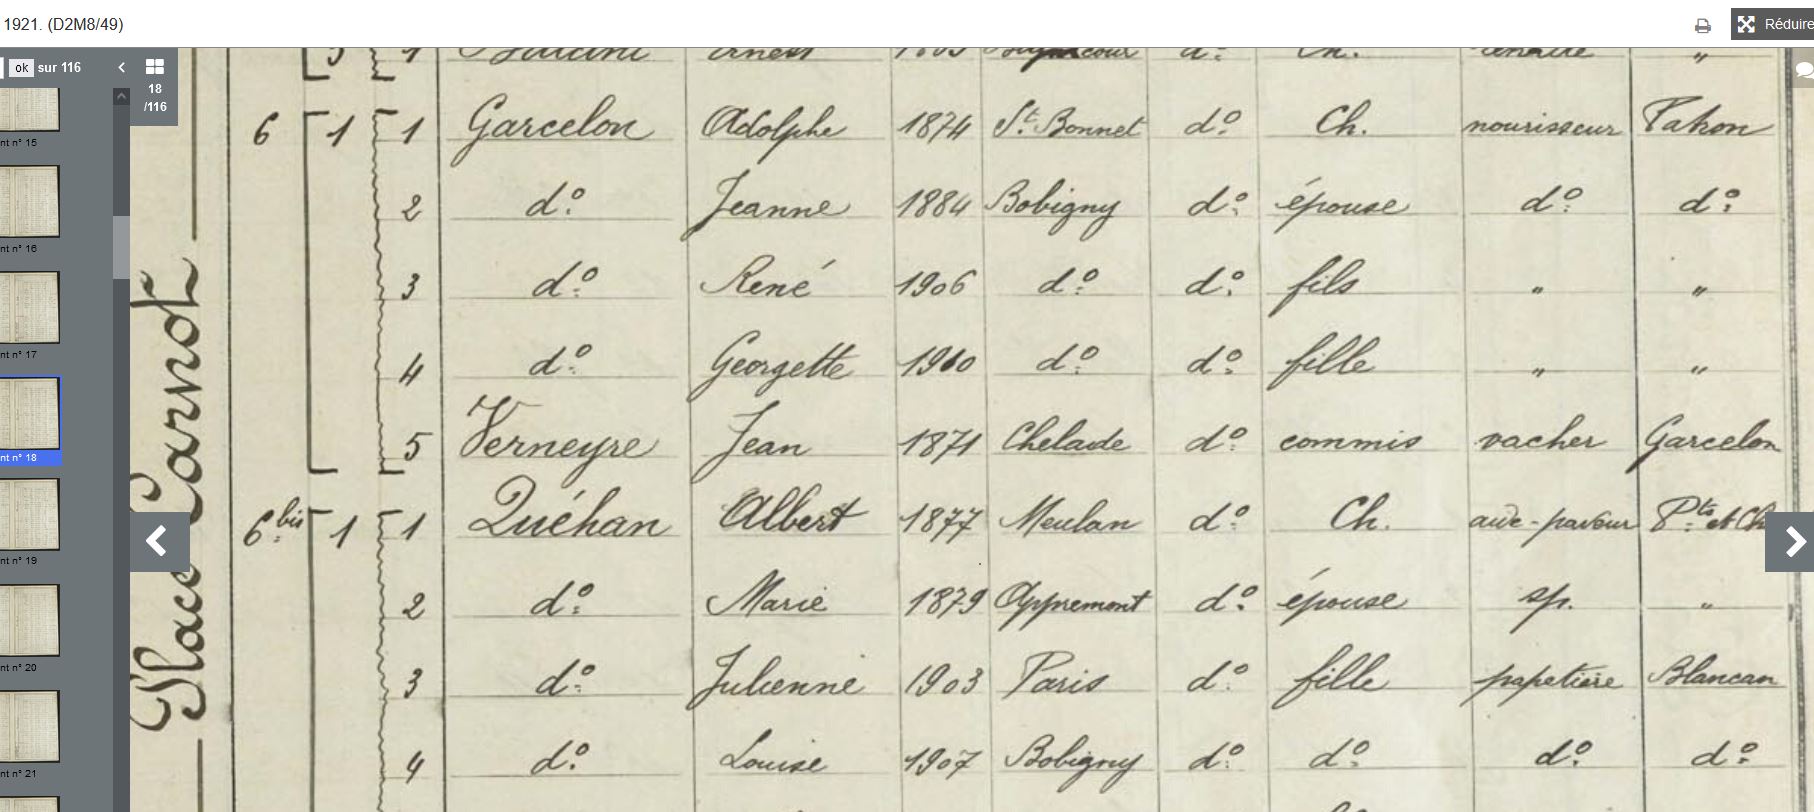 1921. (D2M8/49)
Réduire
ok sur 116
18
/116
nt n° 15
nt n° 16
nt n° 17
nt n° 18
nt n° 19
nt n° 20
nt n° 21
Place Carnot
6 1 1 Garcelon Adolphe 1874 St. Bonnet do. Ch. nourisseur Pahon
2 do. Jeanne 1884 Bobigny do. épouse do. do.
3 do. René 1906 do. do. fils " "
4 do. Georgette 1910 do. do. fille " "
5 Verneyre Jean 1871 Chelade do. commis vacher Garcelon
6 bis 1 1 Quéhan Albert 1877 Meulan do. Ch. aide-paveur Pts. et Ch
2 do. Marie 1879 Appremont do. épouse sp. "
3 do. Julienne 1903 Paris do. fille papetière Blancan
4 do. Louise 1907 Bobigny do. do. do. do.